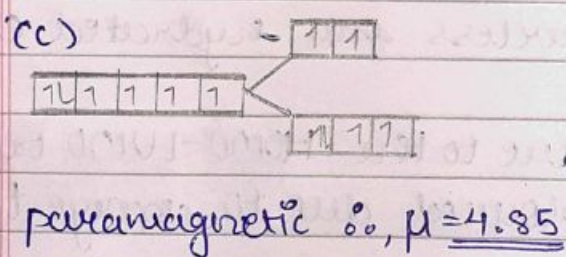 (c) - 1 1
1L 1 1 1 1
1L 1 1
paramagnetic ∴, μ = 4.85